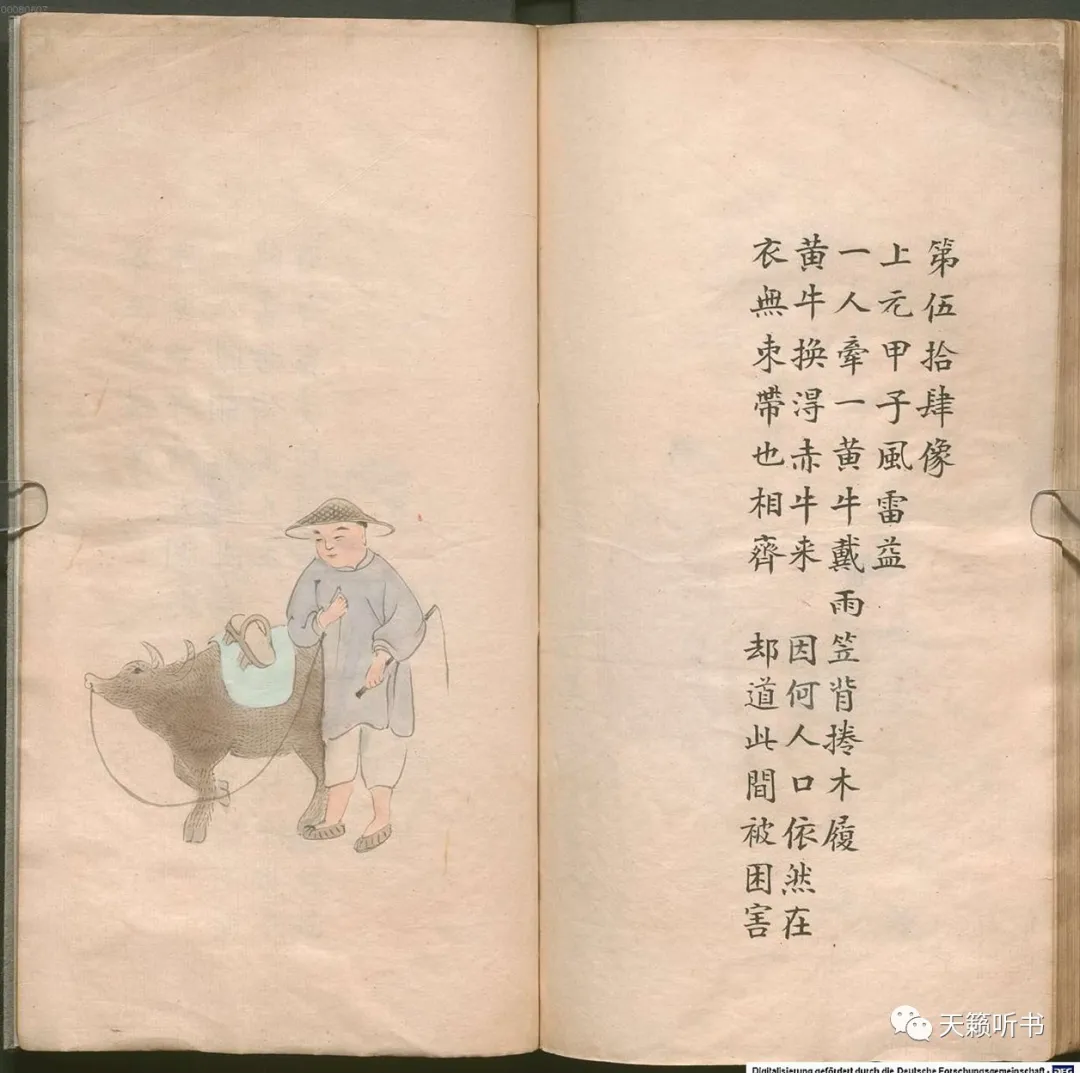 00080607
第伍拾肆像
上元甲子風雷益
一人牽一黄牛戴雨笠背捲木履
黄牛换淂赤牛来 因何人口依然在
衣無束帶也相齊 却道此間被困害
天籁听书
Digitalisierung gefördert durch die Deutsche Forschungsgemeinschaft - DFG